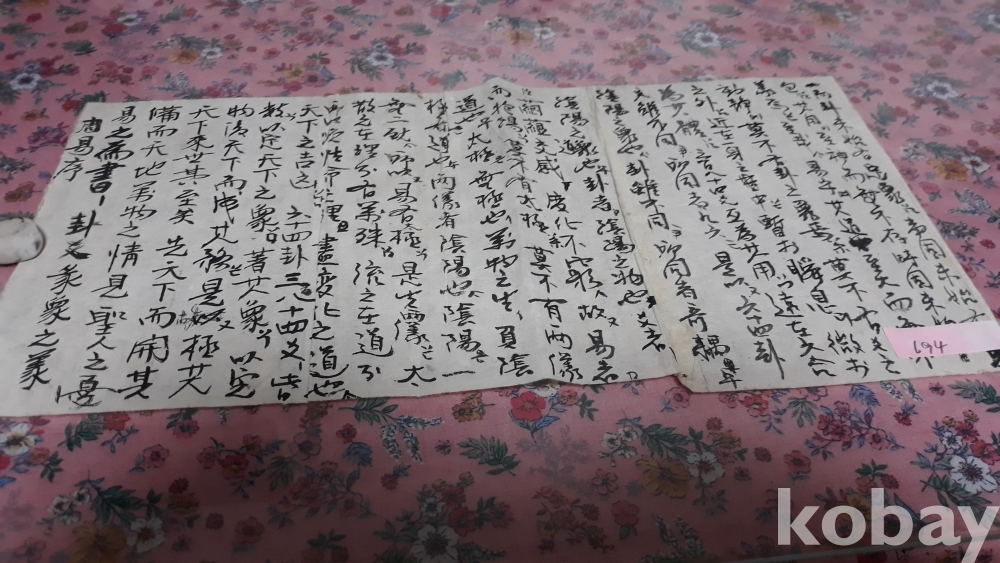 周易序
易之為書 卦爻彖象之義
備而天地萬物之情見聖人之憂
天下來世其至矣 先天下而開其
物後天下而成其務 是故極其
數以定天下之象 著其象 以定
天下之吉凶 六十四卦三百八十四爻 皆
所以順性命之理 盡變化之道也
散之在理則有萬殊 統之在道則
無二致 所以易有太極 是生兩儀 太
極者道也 兩儀者陰陽也 陰陽一
道也 太極無極也 萬物之生 負陰
而抱陽 莫不有太極 莫不有兩儀
絪縕交感 變化不窮 故易者
陰陽之道也 卦者陰陽之物也 爻者
陰陽之動也 卦雖不同 所同者奇耦
爻雖不同 所同者九六 是以六十四卦
為其體 互為其用 遠在六合
之外 近在一身之中 暫於瞬息 微於
動靜 莫不有卦之象焉 莫不有爻之
義焉 至哉易乎 其道至大而無不
包 其用至神而無不存 時固未始有
694
kobay